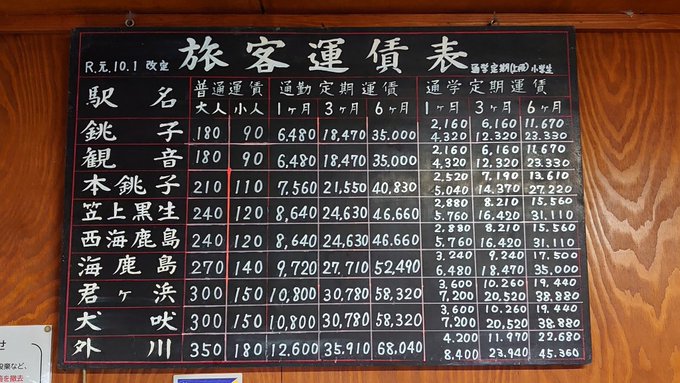 旅客運賃表
R.元.10.1 改定
通学定期(上段)小学生
駅名 普通運賃 通勤定期運賃 通学定期運賃
大人 小人 1ヶ月 3ヶ月 6ヶ月 1ヶ月 3ヶ月 6ヶ月
2,160 6,160 11,670
銚子 180 90 6,480 18,470 35,000 4,320 12,320 23,330
2,160 6,160 11,670
観音 180 90 6,480 18,470 35,000 4,320 12,320 23,330
2,520 7,190 13,610
本銚子 210 110 7,560 21,550 40,830 5,040 14,370 27,220
2,880 8,210 15,560
笠上黒生 240 120 8,640 24,630 46,660 5,760 16,420 31,110
2,880 8,210 15,560
西海鹿島 240 120 8,640 24,630 46,660 5,760 16,420 31,110
3,240 9,240 17,500
海鹿島 270 140 9,720 27,710 52,490 6,480 18,470 35,000
3,600 10,260 19,440
君ヶ浜 300 150 10,800 30,780 58,320 7,200 20,520 38,880
3,600 10,260 19,440
犬吠 300 150 10,800 30,780 58,320 7,200 20,520 38,880
4,200 11,970 22,680
外川 350 180 12,600 35,910 68,040 8,400 23,940 45,360
せ
を撤去